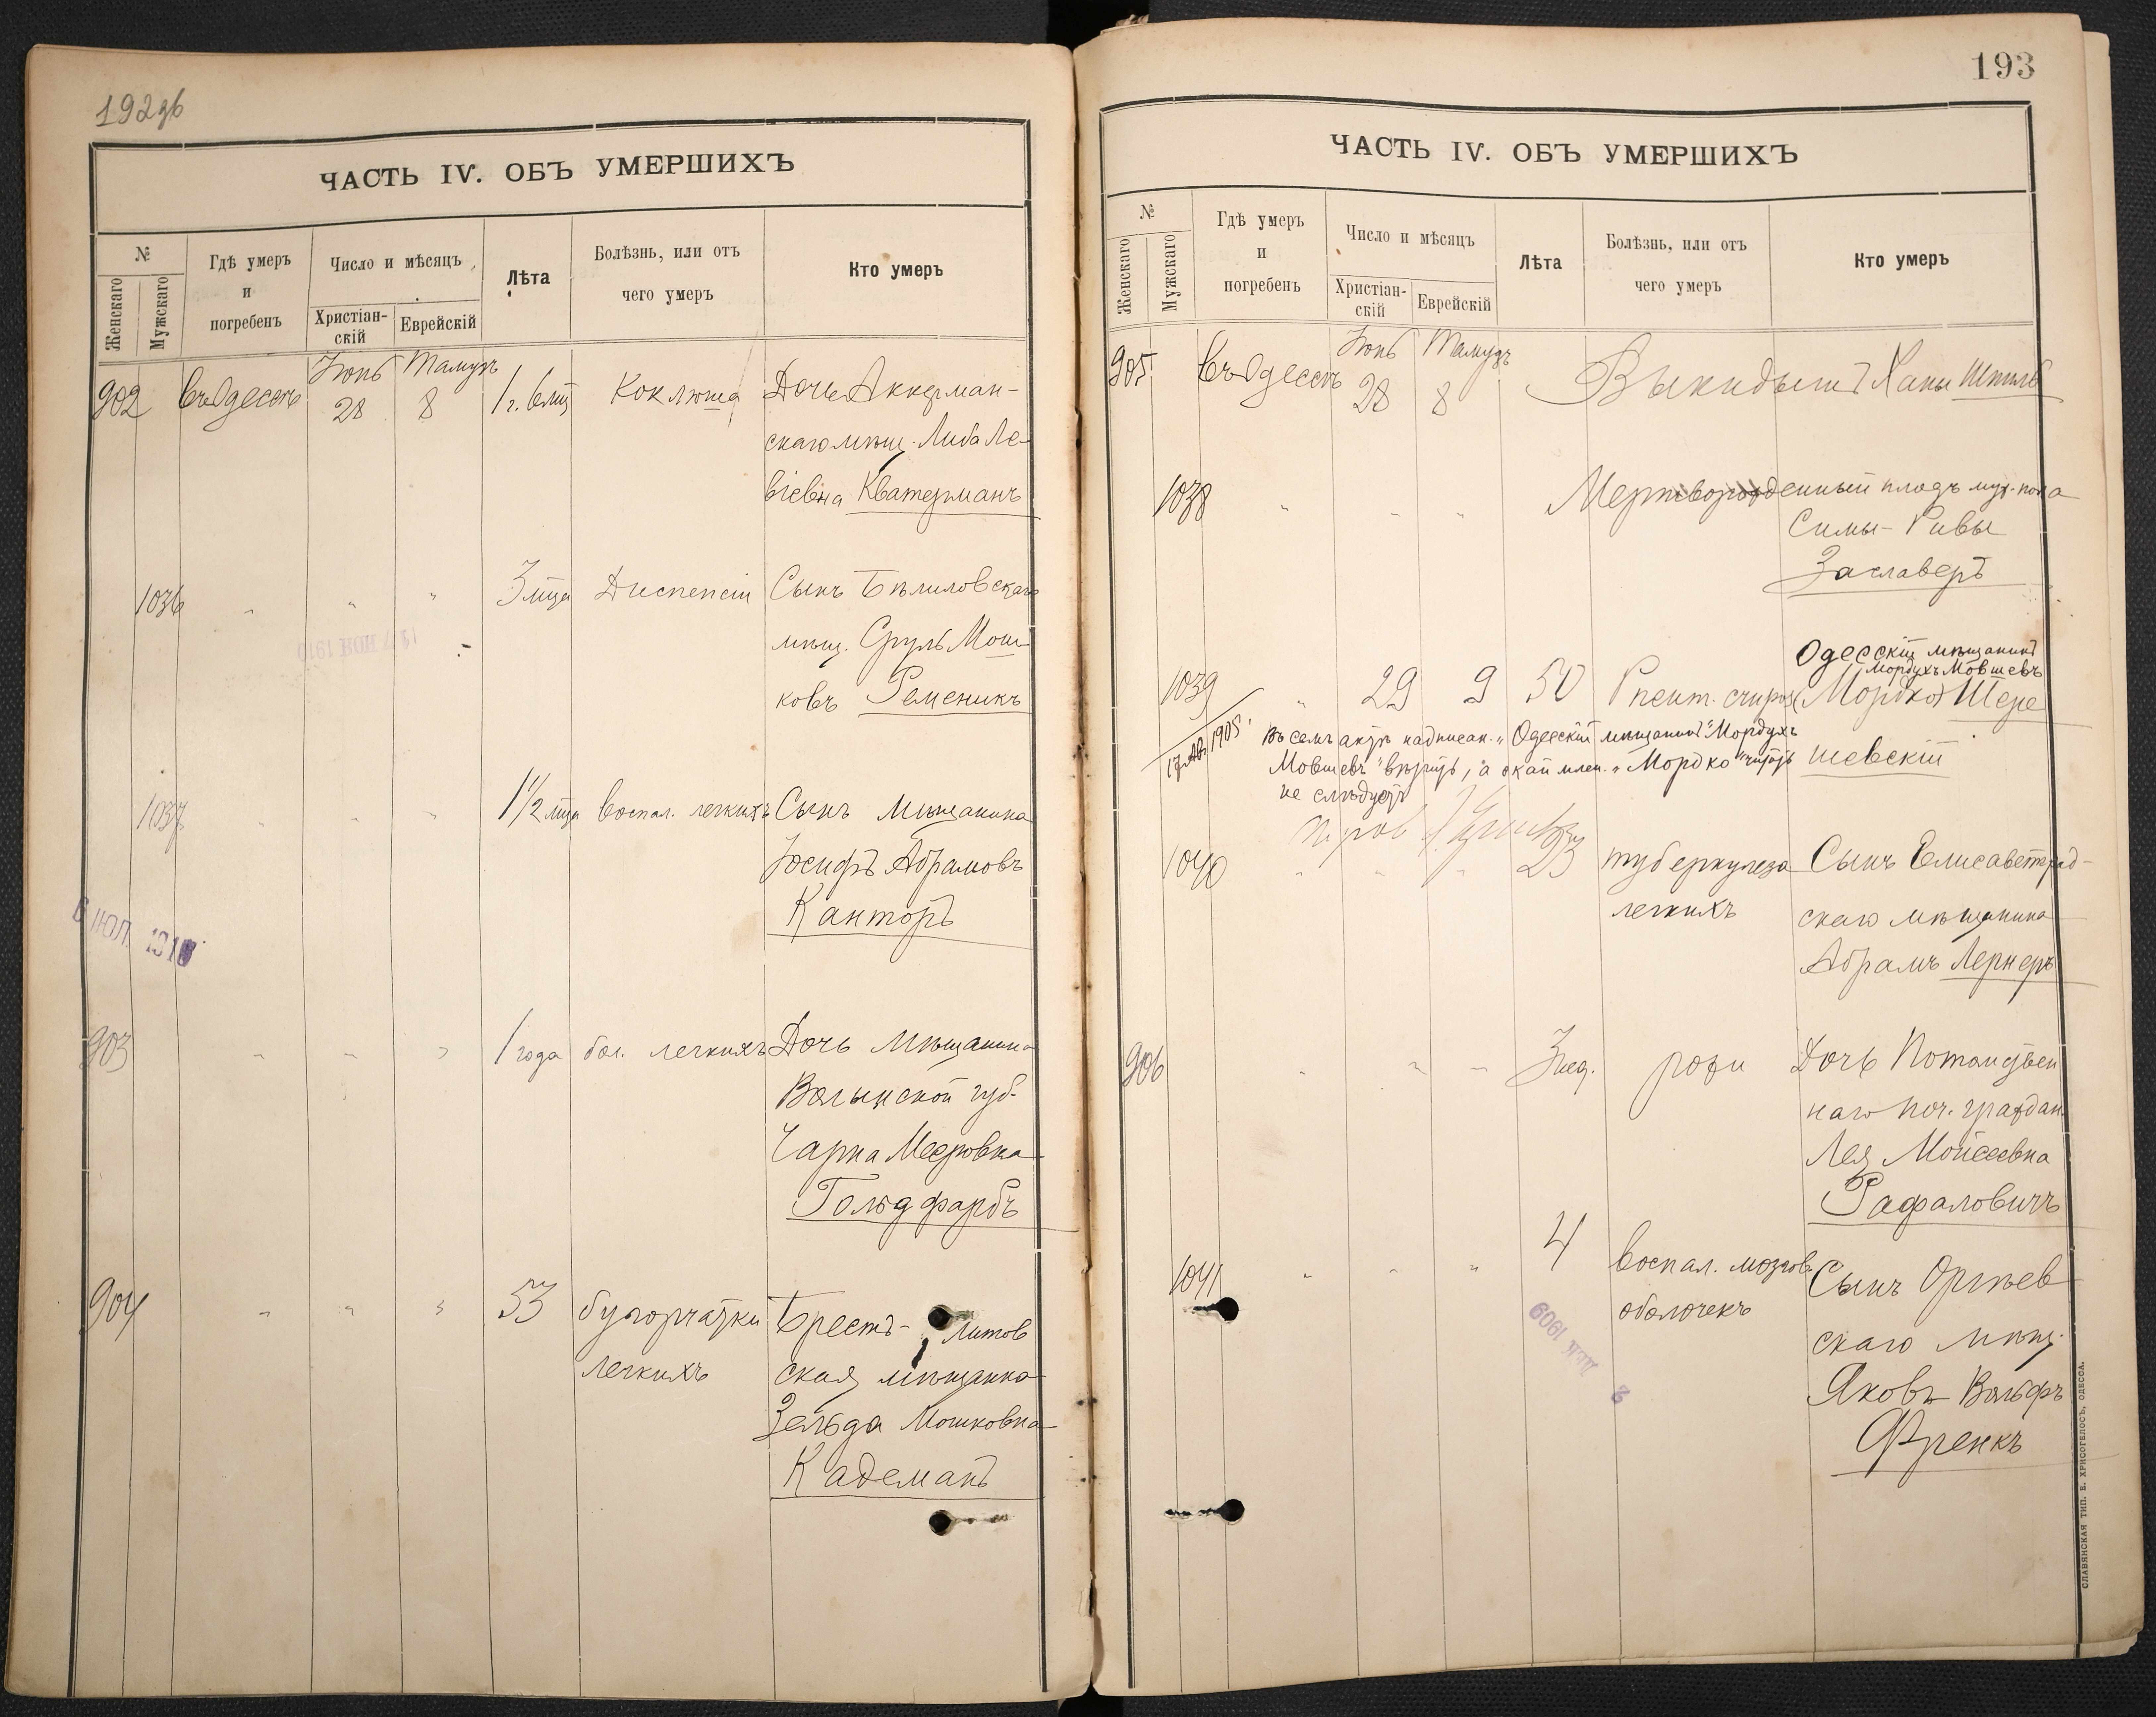 192об
ЧАСТЬ IV. ОБЪ УМЕРШИХЪ
№
Женскаго
Мужскаго
Гдѣ умеръ
и
погребенъ
Число и мѣсяцъ
Христіан-
скій
Еврейскій
Лѣта
Болѣзнь, или отъ
чего умеръ
Кто умеръ
Іюнь Тамузъ
902 въ Одессѣ 28 8 1 г. 6 мц Коклюша Дочь Аккерман-
скаго мѣщ. Либа Ле-
віевна Кватерманъ
1036 " " " 3 мца Диспепсіи Сынъ Бѣлиловскаго
мѣщ. Сруль Мош-
ковъ Ременикъ
17 НОЯ 1910
1037 " " " 1 1/2 мца воспал. легкихъ Сынъ Мѣщанина
Іосифъ Абрамовъ
Канторъ
6 ІЮЛ. 191
903 " " " 1 года бол. легкихъ Дочь Мѣщанина
Волынской губ.
Чарна Мееровна
Гольдфарбъ
904 " " " 53 бугорчатки Брестъ-Литов
легкихъ ская мѣщанка
Зельда Мошковна
Кадеманъ
193
ЧАСТЬ IV. ОБЪ УМЕРШИХЪ
№
Женскаго
Мужскаго
Гдѣ умеръ
и
погребенъ
Число и мѣсяцъ
Христіан-
скій
Еврейскій
Лѣта
Болѣзнь, или отъ
чего умеръ
Кто умеръ
Іюнь Тамузъ
905 въ Одессѣ 28 8 Выкидышъ Ханы Шпиль
1038 " " " Мертворожденный плодъ муж. пола
Симы-Ривы
Заславеръ
Одесскій мѣщанинъ
Мордухъ Мовшевъ
1039 " 29 9 50 (Мордко) Шере
шевскій
17 Ав. 1905.
Въ семъ актѣ надписан. "Одесскій мѣщанинъ" Мордухъ
Мовшевъ" вѣрить, а "Мордко" читать
не слѣдуетъ
1040 " " " 23 туберкулеза Сынъ Елисаветград-
легкихъ скаго мѣщанина
Абрамъ Лернеръ
906 " " " 3 нед. рожи Дочь Потомствен
наго поч. граждан.
Лея Моисеевна
Рафаловичъ
1041 " " " 4 воспал. мозгов. Сынъ Оргѣев
оболочекъ скаго мѣщ.
Яковъ Вольфъ
Френкъ
2 ДЕК 1909
СЛАВЯНСКАЯ ТИП. Е. ХРИСОГЕЛОСЪ, ОДЕССА.